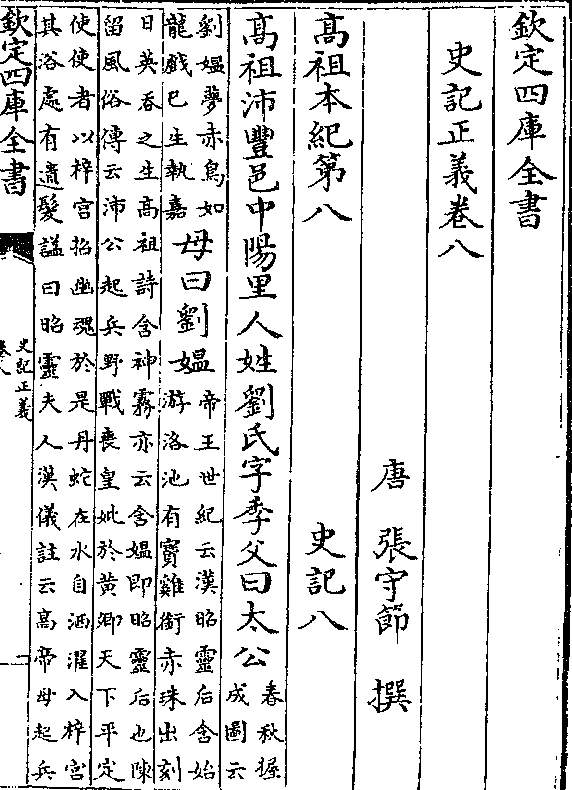 欽定四庫全書
史記正義卷八
唐 張守節 撰
髙祖本紀第八 史記八
髙祖沛豐邑中陽里人姓劉氏字季父曰太公
春秋握
成圖云
劉媪夢赤鳥如
龍戲已生執嘉
母曰劉媼
帝王世紀云漢昭靈后含始
游洛池有寳雞銜赤珠出刻
曰英吞之生髙祖詩含神霧亦云含媼即昭靈后也陳
留風俗傳云沛公起兵野戰喪皇妣於黄鄉天下平定
使使者以梓宫招幽魂於是丹蛇在水自洒濯入梓宫
其浴處有遺髮諡曰昭靈夫人漢儀註云髙帝母起兵
欽定四庫全書
史記正義
卷八